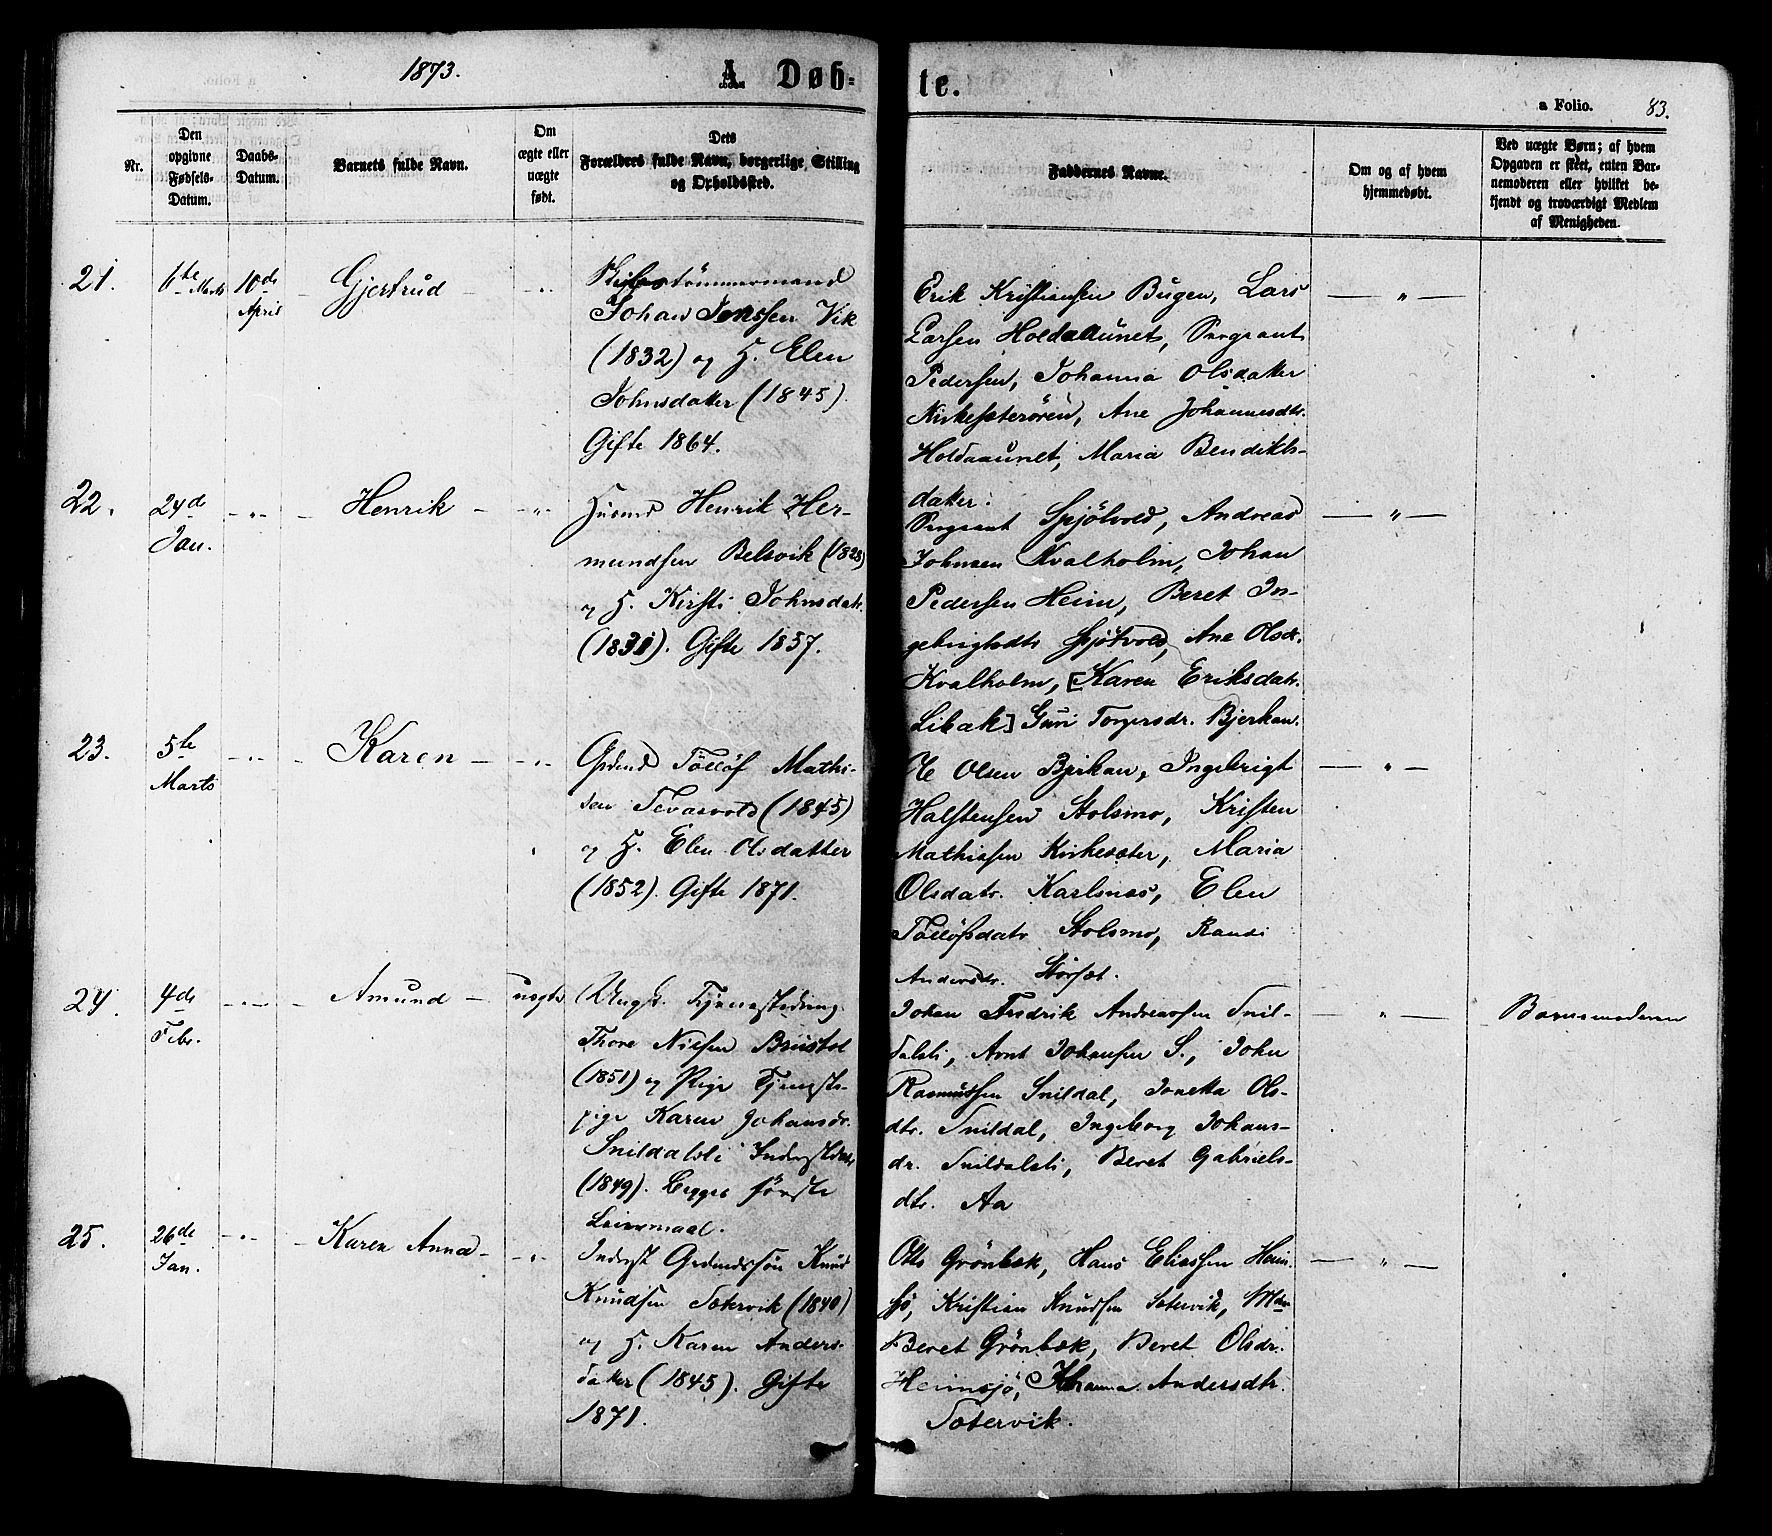 1873.
A Døb=
te.
a Folio. 83.
Nr.
Den opgivne Fødsels-Datum.
Daabs-Datum.
Barnets fulde Navn.
Om ægte eller uægte født.
Dets
Forældres fulde Navn, borgerlige Stilling
og Opholdssted.
Faddernes Navne.
Om og af hvem
hjemmedøbt.
Ved uægte Børn; af hvem
Opgaven er skeet, enten Bar-
nemoderen eller hvilket be-
kjendt og troværdigt Medlem
af Menigheden.
21. 6te Marts 10de April Gjertrud
Skibstömmermand
Johan Jenssen Vik
(1832) og H. Elen
Johnsdatter (1845).
Gifte 1864.
Erik Kristiansen Bugen, Lars
Larsen Holdaaunet, Sergeant
Pedersen, Johanna Olsdatter
Kirkesæterören, Ane Johannesdtr.
Holdaaunet, Maria Bendikts-
datter.
22. 24d Jan. Henrik
Husmd Henrik Her-
mundsen Belsvik (1828)
og H. Kirsti Johnsdatr.
(1831). Gifte 1857.
Sergeant Spjötvold, Andreas
Johnsen Kvalholm, Johan
Pedersen Heim, Beret In-
gebrigtsdtr Spjötvold, Ane Olsdr.
Kvalholm, [Karen Eriksdatr.
Libak] Guri Torgersdr. Bjerkan.
23. 5te Marts Karen
Grdmd Tölløf Mathi-
sen Tevasvold (1845)
og H. Elen Olsdatter
(1852). Gifte 1871.
Ole Olsen Bjerkan, Ingebrigt
Halstensen Stolsmo, Kristen
Mathissen Kirkesæter, Maria
Olsdatr. Karlsnæs, Elen
Tölløfsdatr Stolsmo, Randi
Andersdr. Storset.
24. 4de Febr. Amund uægte
Ungk. Tjenestedreng
Thore Nilsen
(1851) og Pige Tjeneste-
pige Karen Johansdr.
Snildalsli
(1849). Begges første
Leiermaal.
Johan Fredrik Andreassen Snil-
dalsli, Arnt Johansen S., John
Rasmussen Snildal, Jonetta Ols-
dtr. Snildal, Ingeborg Johans-
dr. Snildalsli, Beret Gabriels-
dtr. Aa
Barnemoderen
25. 26de Jan. Karen Anna
Inderst Grdmdssön Knud
Knudsen Sætervik (1840)
og H. Karen Anders-
datter (1845). Gifte
1871.
Otto Grönbæk, Hans Eliassen Heim-
sjö, Kristian Knudsen Sætervik, Mdm
Beret Grönbæk, Beret Olsdr.
Heimsjö, Johanna Andersdtr.
Sætervik.